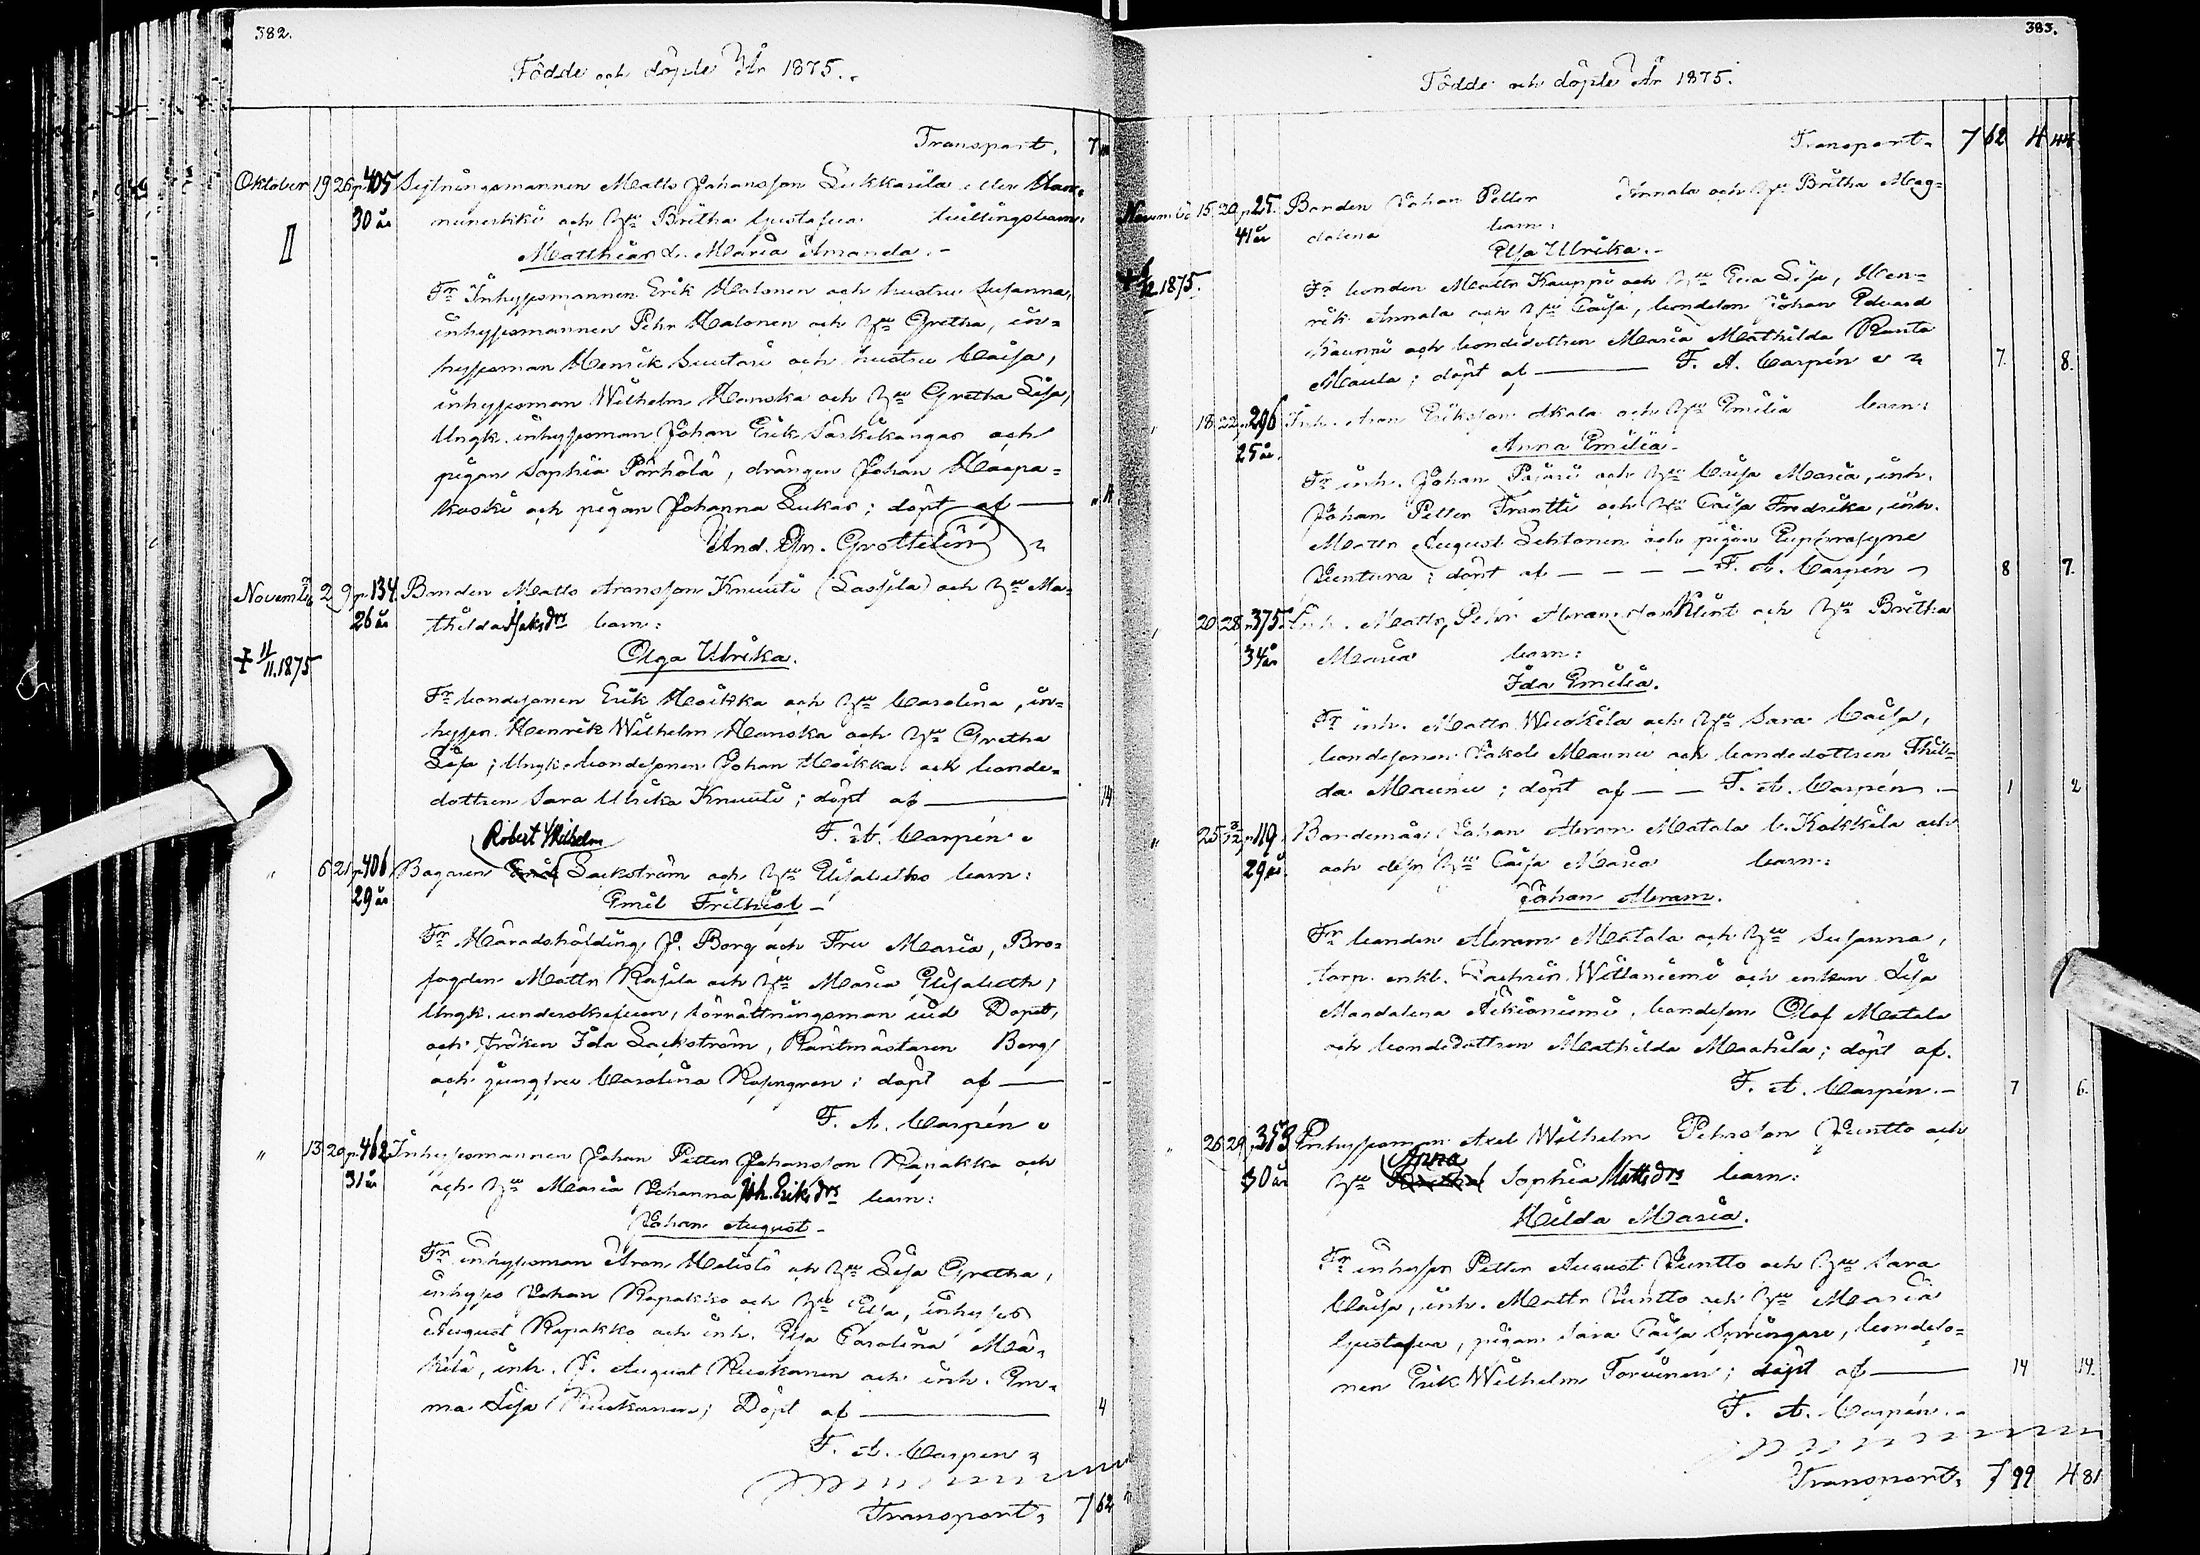 382.
Födde och döpte År 1875.
Transport.
Oktober 19 26 p. 405 Sytningsmannen Matts Johansson Lukkarila eller Han-
30 år nuneskikö och Hu Britha Gustafva tvillingsbarn:
II
Matthias & Maria Amanda.-
Fr Inhysesmannen Erik Halonen och hustru Susanna,
inhysesmannen Pehr Halonen och Hu Gretha, in-
hysesman Henrik Suutari och hustru Caisa,
inhysesman Wilhelm Hanska och Hu Gretha Lisa,
Ungk. inhysesman Johan Erik Särkikangas och
pigan Sophia Pörhölä, drängen Johan Haapa-
koski och pigan Johanna Lukas; döpt af —
And. Gr. Grottelin
Novemb. 2 9 p. 134. Bonden Matts Aronsson Knuuti (Lassila) och Hu Ma-
26 år thilda Isaksdr barn:
Olga Ulrika.
+ 11/11.1875
Fr bondesonen Erik Hoikka och Hu Carolina, in-
hysesm. Henrik Wilhelm Hanska och Hu Gretha
Lisa; Ungk. bondesonen Johan Hoikka och bonde-
dottren Sara Ulrika Knuuti; döpt af — 14
F. A. Carpén
Robert Wilhelm
" 6 21 p. 406 Bagaren Sackström och Hu Elisabeths barn:
29 år
Emil Frithiof -
Fr Häradshöfding J. Borg och Fru Maria, Bro-
fogden Matts Rasila och Hu Maria Elisabeth,
Ungk. underskrifven, förrättningsman vid Dopet,
och fröken Ida Sackström, Räntmästaren Borg
och jungfru Carolina Rosengren; döpt af —
F. A. Carpén
" 13 20 p. 462 Inhysesmannen Johan Petter Johansson Rapakko och
31 år och Hu Maria Johanna Joh. Eriksdr barn:
Johan August -
Fr inhysesman Aron Halistö och Hu Lisa Gretha,
inhyses Johan Rapakko och Hu Elsa, inhyses
August Rapakko och inh. Elsa Carolina Mä-
kelä, inh. J. August Ruokanen och inh. Em-
ma Lisa Ruokanen; Döpt af — 4
F. A. Carpén
Transport. 7 62
383.
Födde och döpte År 1875.
Transport. 7 62 4 44
Novemb. 15 20 p. 25. Bonden Johan Petter Annala och Hu Britha Mag-
41 år dalena barn:
Elsa Ulrika.-
1875.
Fr bonden Matts Kauppi och Hu Eva Lisa, Hen-
rik Annala och Hu Caisa, bondeson Johan Edvard
Kauppi och bondedottren Maria Mathilda Ranta
Maula; döpt af — F. A. Carpén 7. 8.
" 18 22 p. 296 Inh. Aron Eriksson Akala och Hu Emilia barn:
25 år.
Anna Emilia.-
Fr inh. Johan Pajari och Hu Caisa Maria, inh.
Johan Petter Frantti och Hu Caisa Fredrika, inh.
Matts August Lehtonen och pigan Euphrosyne
Ventura; döpt af — — — F. A. Carpén 8 7.
" 20 28 p. 375. Inh. Matts Pehr Abramsson Klint och Hu Britha
34 år Maria barn:
Ida Emilia.
Fr inh. Matts Wuokila och Hu Sara Caisa,
bondesonen Jakob Maunu och bondedottren Thil-
da Maunu; döpt af — — F. A. Carpén. — 1 2
" 25 5/12 p. 119. Bondemåg Johan Abram Matala l. Kokkila och
29 år. och dess Hu Caisa Maria barn:
Johan Abram.
Fr bonden Abram Matala och Hu Susanna,
torp. enkl. Zachris Willaniemi och enkan Lisa
Magdalena Äikiäniemi, bondeson Olof Matala
och bondedottren Mathilda Maahila; döpt af.
F. A. Carpén.— 7 6.
" 26 29 p. 353 Inhysesman Axel Wilhelm Pehrsson Juntto och
Anna
30 år Hu Sophia Mattsdr barn:
Hilda Maria.
Fr inhyses Petter August Juntto och Hu Sara
Caisa, inh. Matts Juntto och Hu Maria
Gustafva, pigan Sara Caisa Springare, bondeso-
nen Erik Wilhelm Torvinen; döpt af — 14 14.
F. A. Carpén.
Transport. 7 99 4 81